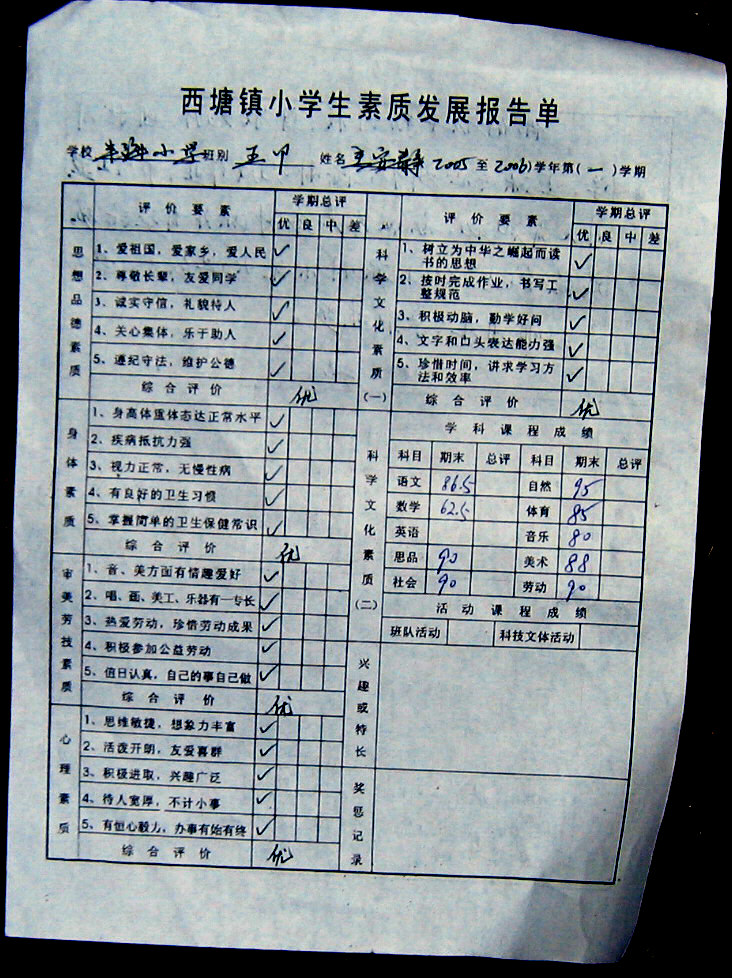 西塘镇小学生素质发展报告单
学校 小学 班别 五甲 姓名 王安静 2005 至 2006)学年第(一)学期
评价要素 学期总评
优 良 中 差
思想品德素质
1、爱祖国，爱家乡，爱人民 ✓
2、尊敬长辈，友爱同学 ✓
3、诚实守信，礼貌待人 ✓
4、关心集体，乐于助人 ✓
5、遵纪守法，维护公德 ✓
综合评价 优
身体素质
1、身高体重体态达正常水平 ✓
2、疾病抵抗力强 ✓
3、视力正常，无慢性病 ✓
4、有良好的卫生习惯 ✓
5、掌握简单的卫生保健常识 ✓
综合评价 优
审美劳技素质
1、音、美方面有情趣爱好 ✓
2、唱、画、美工、乐器有一专长 ✓
3、热爱劳动，珍惜劳动成果 ✓
4、积极参加公益劳动 ✓
5、值日认真，自己的事自己做 ✓
综合评价 优
心理素质
1、思维敏捷，想象力丰富 ✓
2、活泼开朗，友爱喜群 ✓
3、积极进取，兴趣广泛 ✓
4、待人宽厚，不计小事 ✓
5、有恒心毅力，办事有始有终 ✓
综合评价 优
评价要素 学期总评
优 良 中 差
科学文化素质(一)
1、树立为中华之崛起而读
书的思想 ✓
2、按时完成作业，书写工
整规范 ✓
3、积极动脑，勤学好问 ✓
4、文字和口头表达能力强 ✓
5、珍惜时间，讲求学习方
法和效率 ✓
综合评价 优
科学文化素质(二)
学科课程成绩
科目 期末 总评 科目 期末 总评
语文 86.5 自然 95
数学 62.5 体育 85
英语 音乐 80
思品 90 美术 88
社会 90 劳动 90
活动课程成绩
班队活动 科技文体活动
兴趣或特长
奖惩记录